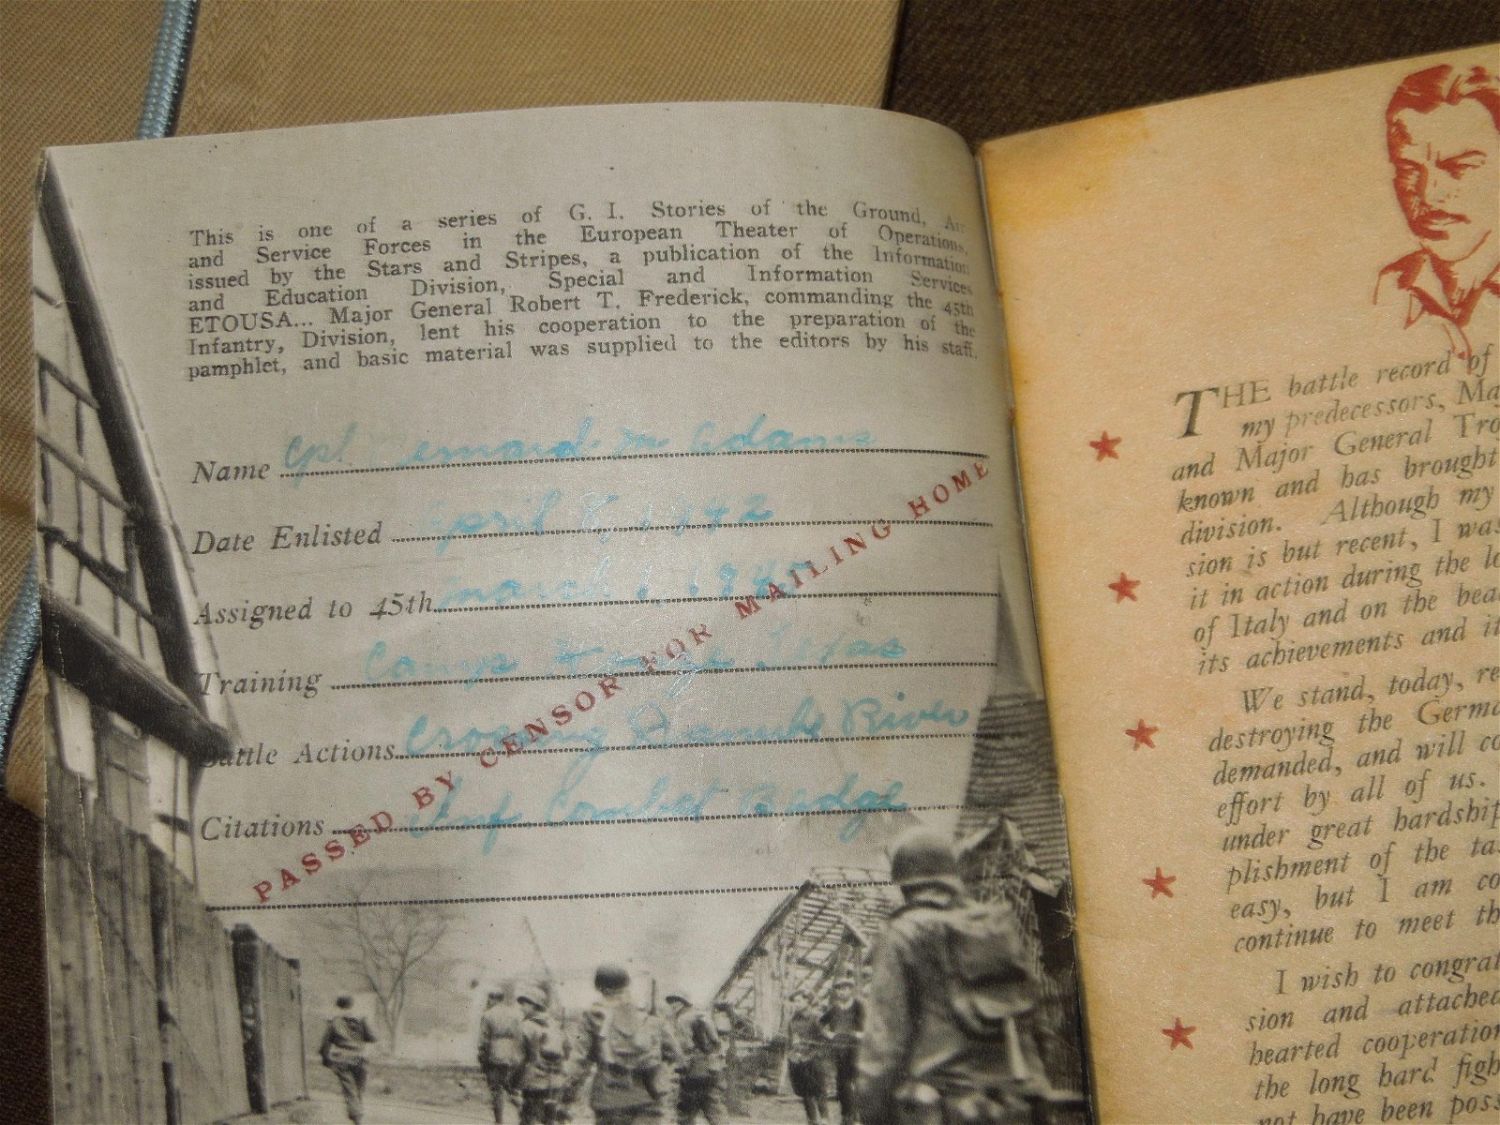 This is one of a series of G. I. Stories of the Ground, Air
and Service Forces in the European Theater of Operations,
issued by the Stars and Stripes, a publication of the Information
and Education Division, Special and Information Services
ETOUSA... Major General Robert T. Frederick, commanding the 45th
Infantry, Division, lent his cooperation to the preparation of the
pamphlet, and basic material was supplied to the editors by his staff.
Name Cpl Bernard M Adams
Date Enlisted April 8, 1942
Assigned to 45th March 1, 1945
Training Camp Texas
Battle Actions Crossing Danube River
Citations Inf. Combat Badge
PASSED BY CENSOR FOR MAILING HOME
THE battle record of
my predecessors, Ma
and Major General Tro
known and has brought
division. Although my
sion is but recent, I was
it in action during the lo
of Italy and on the bea
its achievements and it
We stand, today, re
destroying the Germa
demanded, and will co
effort by all of us.
under great hardship
plishment of the ta
easy, but I am co
continue to meet th
I wish to congrat
sion and attached
hearted cooperation
the long hard figh
not have been poss